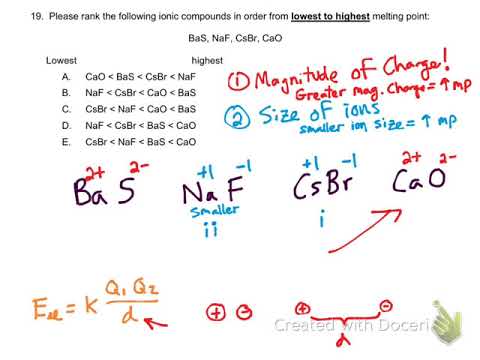 19. Please rank the following ionic compounds in order from lowest to highest melting point:
BaS, NaF, CsBr, CaO
Lowest highest
A. CaO < BaS < CsBr < NaF
B. NaF < CsBr < CaO < BaS
C. CsBr < NaF < CaO < BaS
D. NaF < CsBr < BaS < CaO
E. CsBr < NaF < BaS < CaO
① Magnitude of Charge!
Greater mag. Charge = ↑ mp
② Size of ions
smaller ion size = ↑ mp
2+ 2- +1 -1 +1 -1 2+ 2-
Ba S Na F Cs Br Ca O
smaller
ii i
Eel = K Q1 Q2 / d
+ - + -
d
Created with Doceri